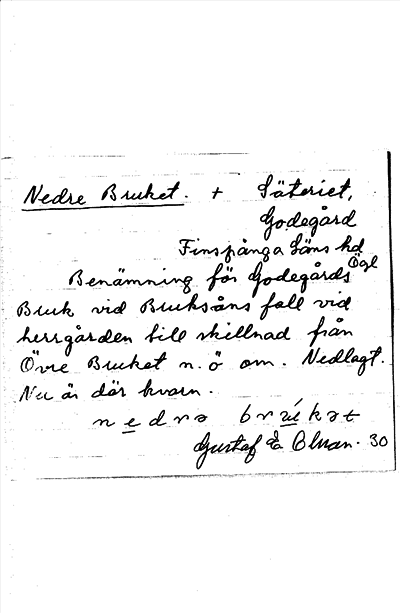 Nedre Bruket. + Säteriet,
Godegård
Finspånga läns hd
Ögl
Benämning för Godegårds
Bruk vid Bruksåns fall vid
herrgården till skillnad från
Övre Bruket n.ö om. Nedlagt.
Nu är där kvarn.
nedrə brúkət
Gustaf E:a Olman. 30